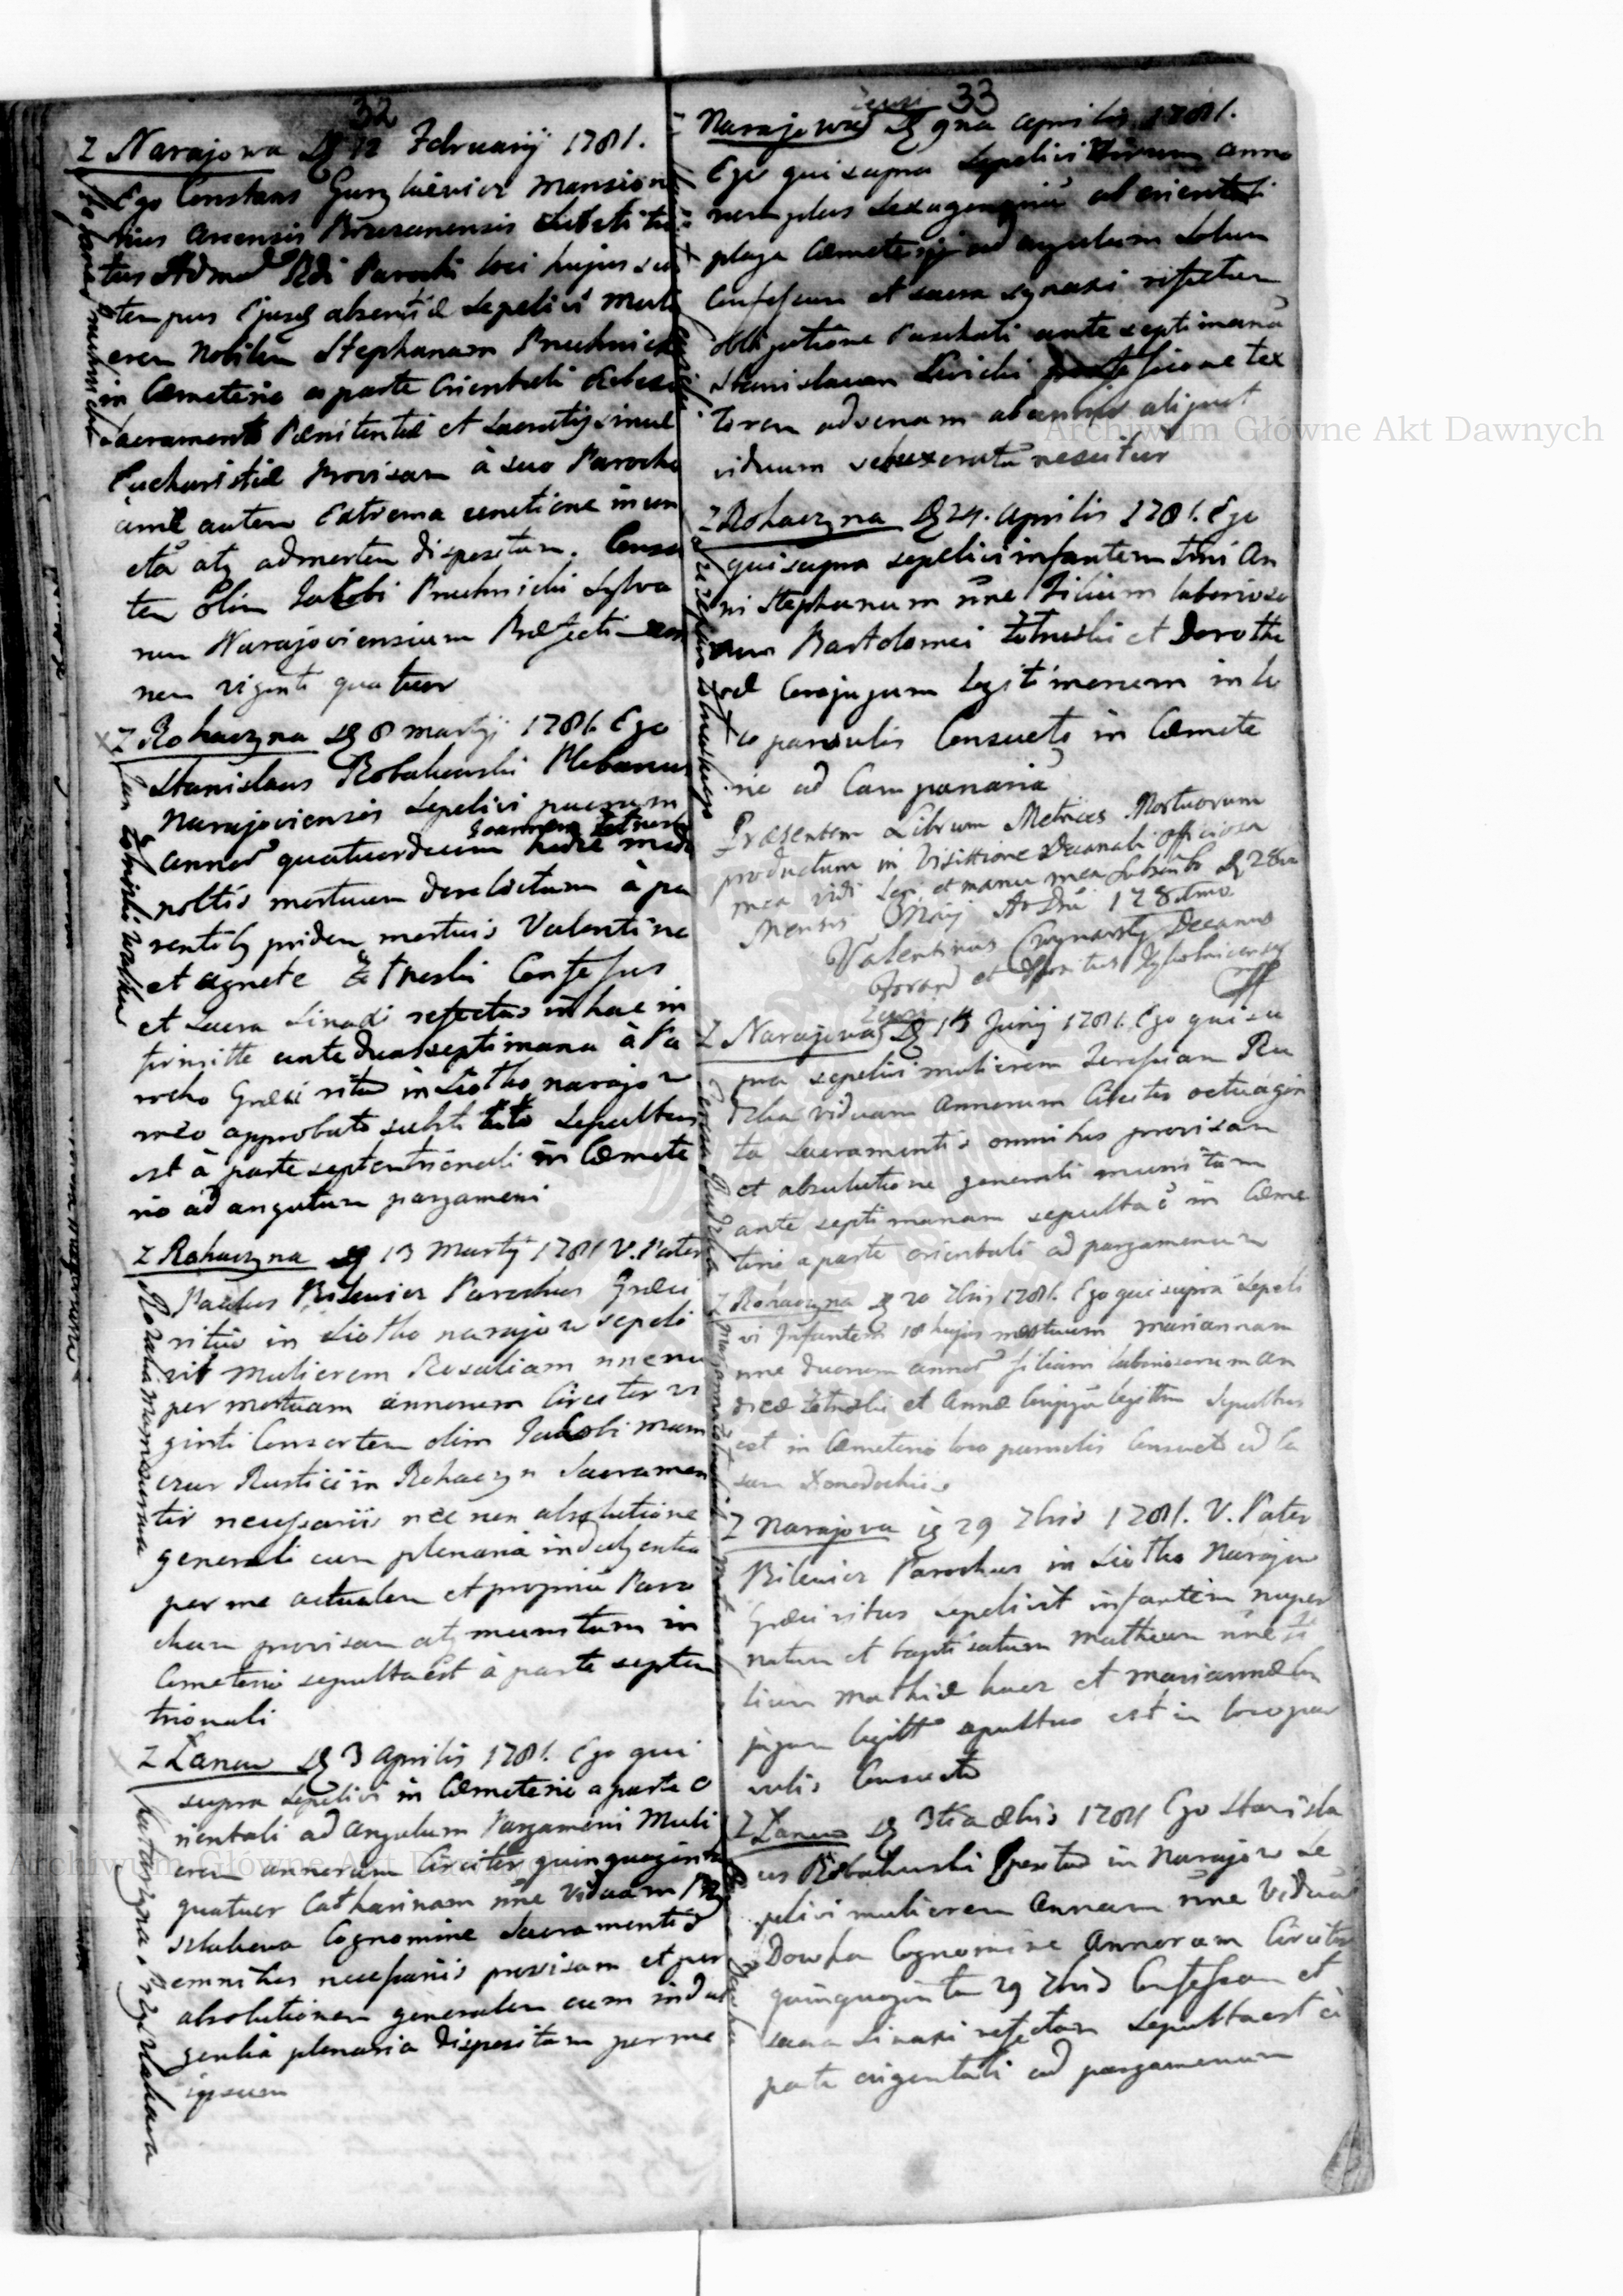 32
Z Narajowa D 12 February 1781.
Ego Constans Mansiona
rius Arcensis Brzezanensis Substitu
tus Admd Rdi Parochi loci hujus sub
tempus Ejusq absentiæ Sepelivi Muli
erem Nobilem Stephanam Pruchnicka
in Cæmeterio a parte Orientali
Sacramento Pœnitentiæ et Sacratissimæ
Eucharistiæ Provisam à suo Parocho
autem Extrema unctione inun
ctã atq ad mortem dispositam. Conso
tem olim Jakobi Pruchnicki Sylva
rum Narajoviensium Præfecti
nem viginti quatuor
Z Rohaczyna D 8 Martÿ 1781. Ego
Stanislaus Robakowski Plebanus
Narajoviensis Sepelivi puerum
Joannem
annor quatuordecim hodie media
noctis mortuum derelictum à pa
rentibq pridem mortuis Valentino
et Agnete Confessus
et Sacra Sinaxi refectus in hac in
firmitte ante duas septimana à Pa
rocho Græci ritus in Siolko narajow
approbato substituto Sepultus
est à parte septentrionali in Cæmete
rio ad angulum pargameni
Z Rohaczyna D 13 Martÿ 1781 V. Pater
Paulus Bilewicz Parochus Græci
ritus in Siolko narajow sepeli
vit Mulierem Rosaliam nne nu
per mortuam annorum Circiter vi
ginti Consortem olim Jakobi Mam
czur Rustici in Rohaczyn Sacramen
tis necessariis nec non absolutione
generali cum plenaria indulgentia
per me actualem et proprium Paro
chum provisam atq munitam in
Cemeterio sepulta est à parte septen
trionali
Z Lanow D 3 Aprilis 1781. Ego qui
supra Sepelivi in Cæmeterio a parte o
rientali ad angulum Pargameni Muli
erem annorum Circiter quinquaginta
quatuor Catharinam nne viduam Prz
Cognomine Sacramentis
omnibus necessariis provisam et per
absolutionem generalem cum indul
gentia plenaria dispositam per me
ipsum
33
Narajowa D 9na Aprilis 1781.
Ego qui supra Sepelivi Virum anno
rum plus sexagenarium ab orientali
plaga Cæmeterij ad angulum Solum
Confessum et sacra synaxi refectum
obligatione Paschali ante septimana
Stanislaum professione tex
torem advenam ab annis aliquot
viduum nescitur
Z Rohaczyna D 24. Aprilis 1781. Ego
qui supra sepelivi infantem An
ni Stephanum nne Filium laborioso
rum Bartolomei et Dorothe
æ Conjugum Legitimorum in lo
co parvulis Consueto in Cæmete
rio ad Campanaria
Præsentem Librum Metrices Mortuorum
productum in Visittione Decanali Officiosa
mea vidi Legi et manu mea Subscribo D 28va
Mensis Maij A Dni 178 1mo
Valentinus Decanus
et
Z Narajowa D 14 Junÿ 1781. Ego qui su
pra sepelivi mulierem Teressiam Ru
dzka viduam Annorum Circiter octuagin
ta Sacramentis omnibus provisam
et absolutione generali munitam
ante septimanam sepulta e in Cæme
terio a parte orientali ad pargamenum
Z Rohaczyna D 20 7bris 1781. Ego qui supra Sepeli
vi Infantem 18 hujus mortuum Mariannam
nne duorum annor filiam laboriosorum An
dreæ et Annæ Conjugũ legittm Sepultus
est in Cæmeterio loco parvulis Consueto ad Ca
sam Xenodochii
Z Narajowa D 29 7bris 1781. V. Pater
Bilewicz Parochus in Siolko Narajow
Græci ritus sepelivit infantem nuper
natum et baptisatum Matheum nne fi
lium Mathiæ kucz et Mariannæ Con
jugum legitt sepultus est in loco par
vulis Consueto
Z Lanow D 3tia 8bris 1781 Ego Stanisla
us Robakowski in Narajow Se
pelivi mulierem Annam nne Viduã
Dowha Cognomine Annorum Circiter
quinquaginta 29 7bris Confessam et
sacra Sinaxi refectam Sepulta est à
parte orientali ad pargamenum
Stefania Pruchnicka
Rozalia Mamczurowa
Katarzyna
Teressa Rudzka
Archiwum Główne Akt Dawnych
Archiwum Główne Akt Dawnych